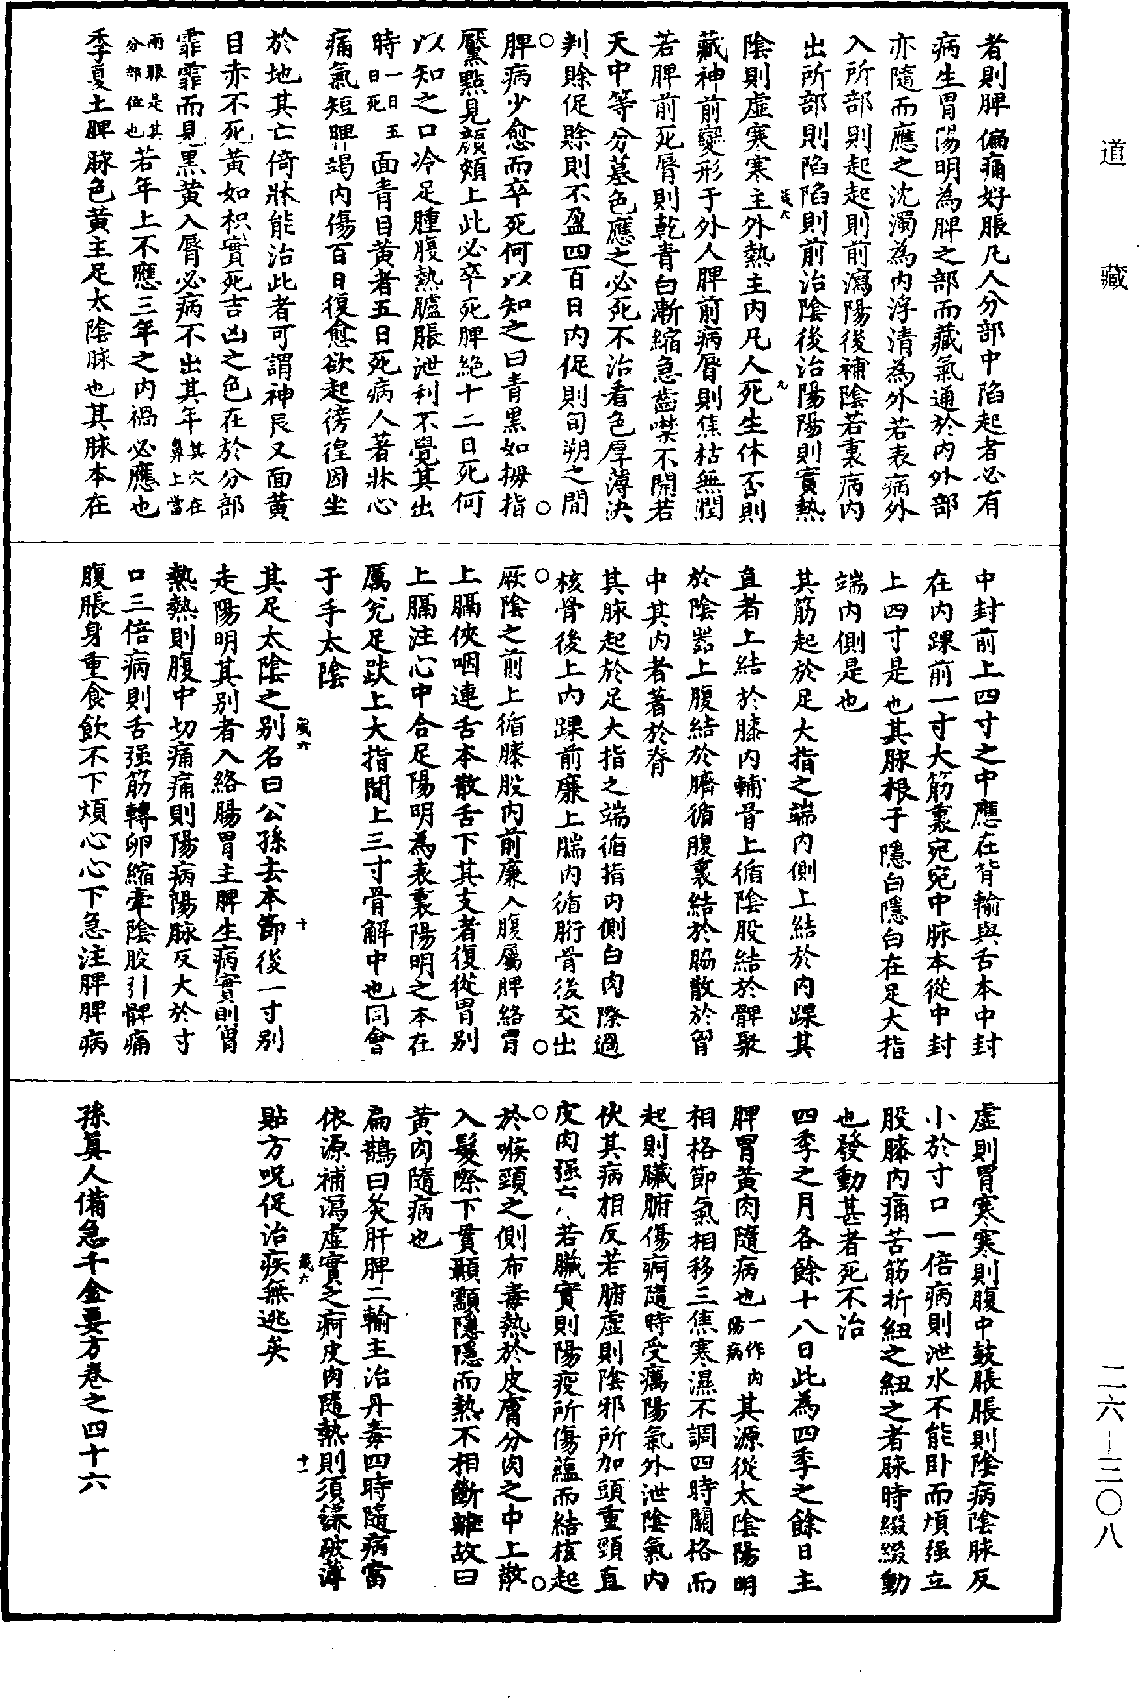 道藏
二六—三〇八
者則脾偏痛好脹凡人分部中陷起者必有
病生胃陽明為脾之部而藏氣通於內外部
亦隨而應之沈濁為內浮清為外若表病外
入所部則起起則前瀉陽後補陰若裏病內
出所部則陷陷則前治陰後治陽陽則實熱
陰則虛寒寒主外熱主內凡人死生休否則
藏神前變形于外人脾前病脣則焦枯無潤
若脾前死脣則乾青白漸縮急齒噤不開若
天中等分墓色應之必死不治看色厚薄決
判賒促賒則不盈四百日內促則旬朔之間
脾病少愈而卒死何以知之曰青黑如拇指
黶點見顏頰上此必卒死脾絕十二日死何
以知之口冷足腫腹熱臚脹泄利不覺其出
時一日五日死面青目黃者五日死病人著牀心
痛氣短脾竭內傷百日復愈欲起徬徨因坐
於地其亡倚牀能治此者可謂神良又面黃
目赤不死黃如枳實死吉凶之色在於分部
霏霏而見黑黃入脣必病不出其年其穴在鼻上當
兩眼是其分部位也若年上不應三年之內禍必應也
季夏土脾脉色黃主足太陰脉也其脉本在
中封前上四寸之中應在背輸與舌本中封
在內踝前一寸大筋裏宛宛中脉本從中封
上四寸是也其脉根于隱白隱白在足大指
端內側是也
其筋起於足大指之端內側上結於內踝其
直者上結於膝內輔骨上循陰股結於髀聚
於陰器上腹結於臍循腹裏結於脇散於胷
中其內者著於脊
其脉起於足大指之端循指內側白肉際過
核骨後上內踝前廉上腨內循胻骨後交出
厥陰之前上循膝股內前廉入腹屬脾絡胃
上膈俠咽連舌本散舌下其支者復從胃別
上膈注心中合足陽明為表裏陽明之本在
厲兌足趺上大指間上三寸骨解中也同會
于手太陰
其足太陰之別名曰公孫去本節後一寸別
走陽明其別者入絡腸胃主脾生病實則胃
熱熱則腹中切痛痛則陽病陽脉反大於寸
口三倍病則舌强筋轉卵縮牽陰股引髀痛
腹脹身重食飲不下煩心心下急注脾脾病
虛則胃寒寒則腹中鼓脹脹則陰病陰脉反
小於寸口一倍病則泄水不能卧而煩强立
股膝內痛苦筋折紐之紐之者脉時綴綴動
也發動甚者死不治
四季之月各餘十八日此為四季之餘日主
脾胃黃肉隨病也一作內陽病其源從太陰陽明
相格節氣相移三焦寒濕不調四時關格而
起則臟腑傷痾隨時受癘陽氣外泄陰氣內
伏其病相反若腑虛則陰邪所加頭重頸直
皮肉强若臟實則陽疫所傷蘊而結核起
於喉頸之側布毒熱於皮膚分肉之中上散
入髮際下貫顳顬隱隱而熱不相斷離故曰
黃肉隨病也
扁鵲曰灸肝脾二輸主治丹毒四時隨病當
依源補瀉虛實之痾皮肉隨熱則須鎌破薄
貼方呪促治疾無逃矣
孫眞人備急千金要方卷之四十六